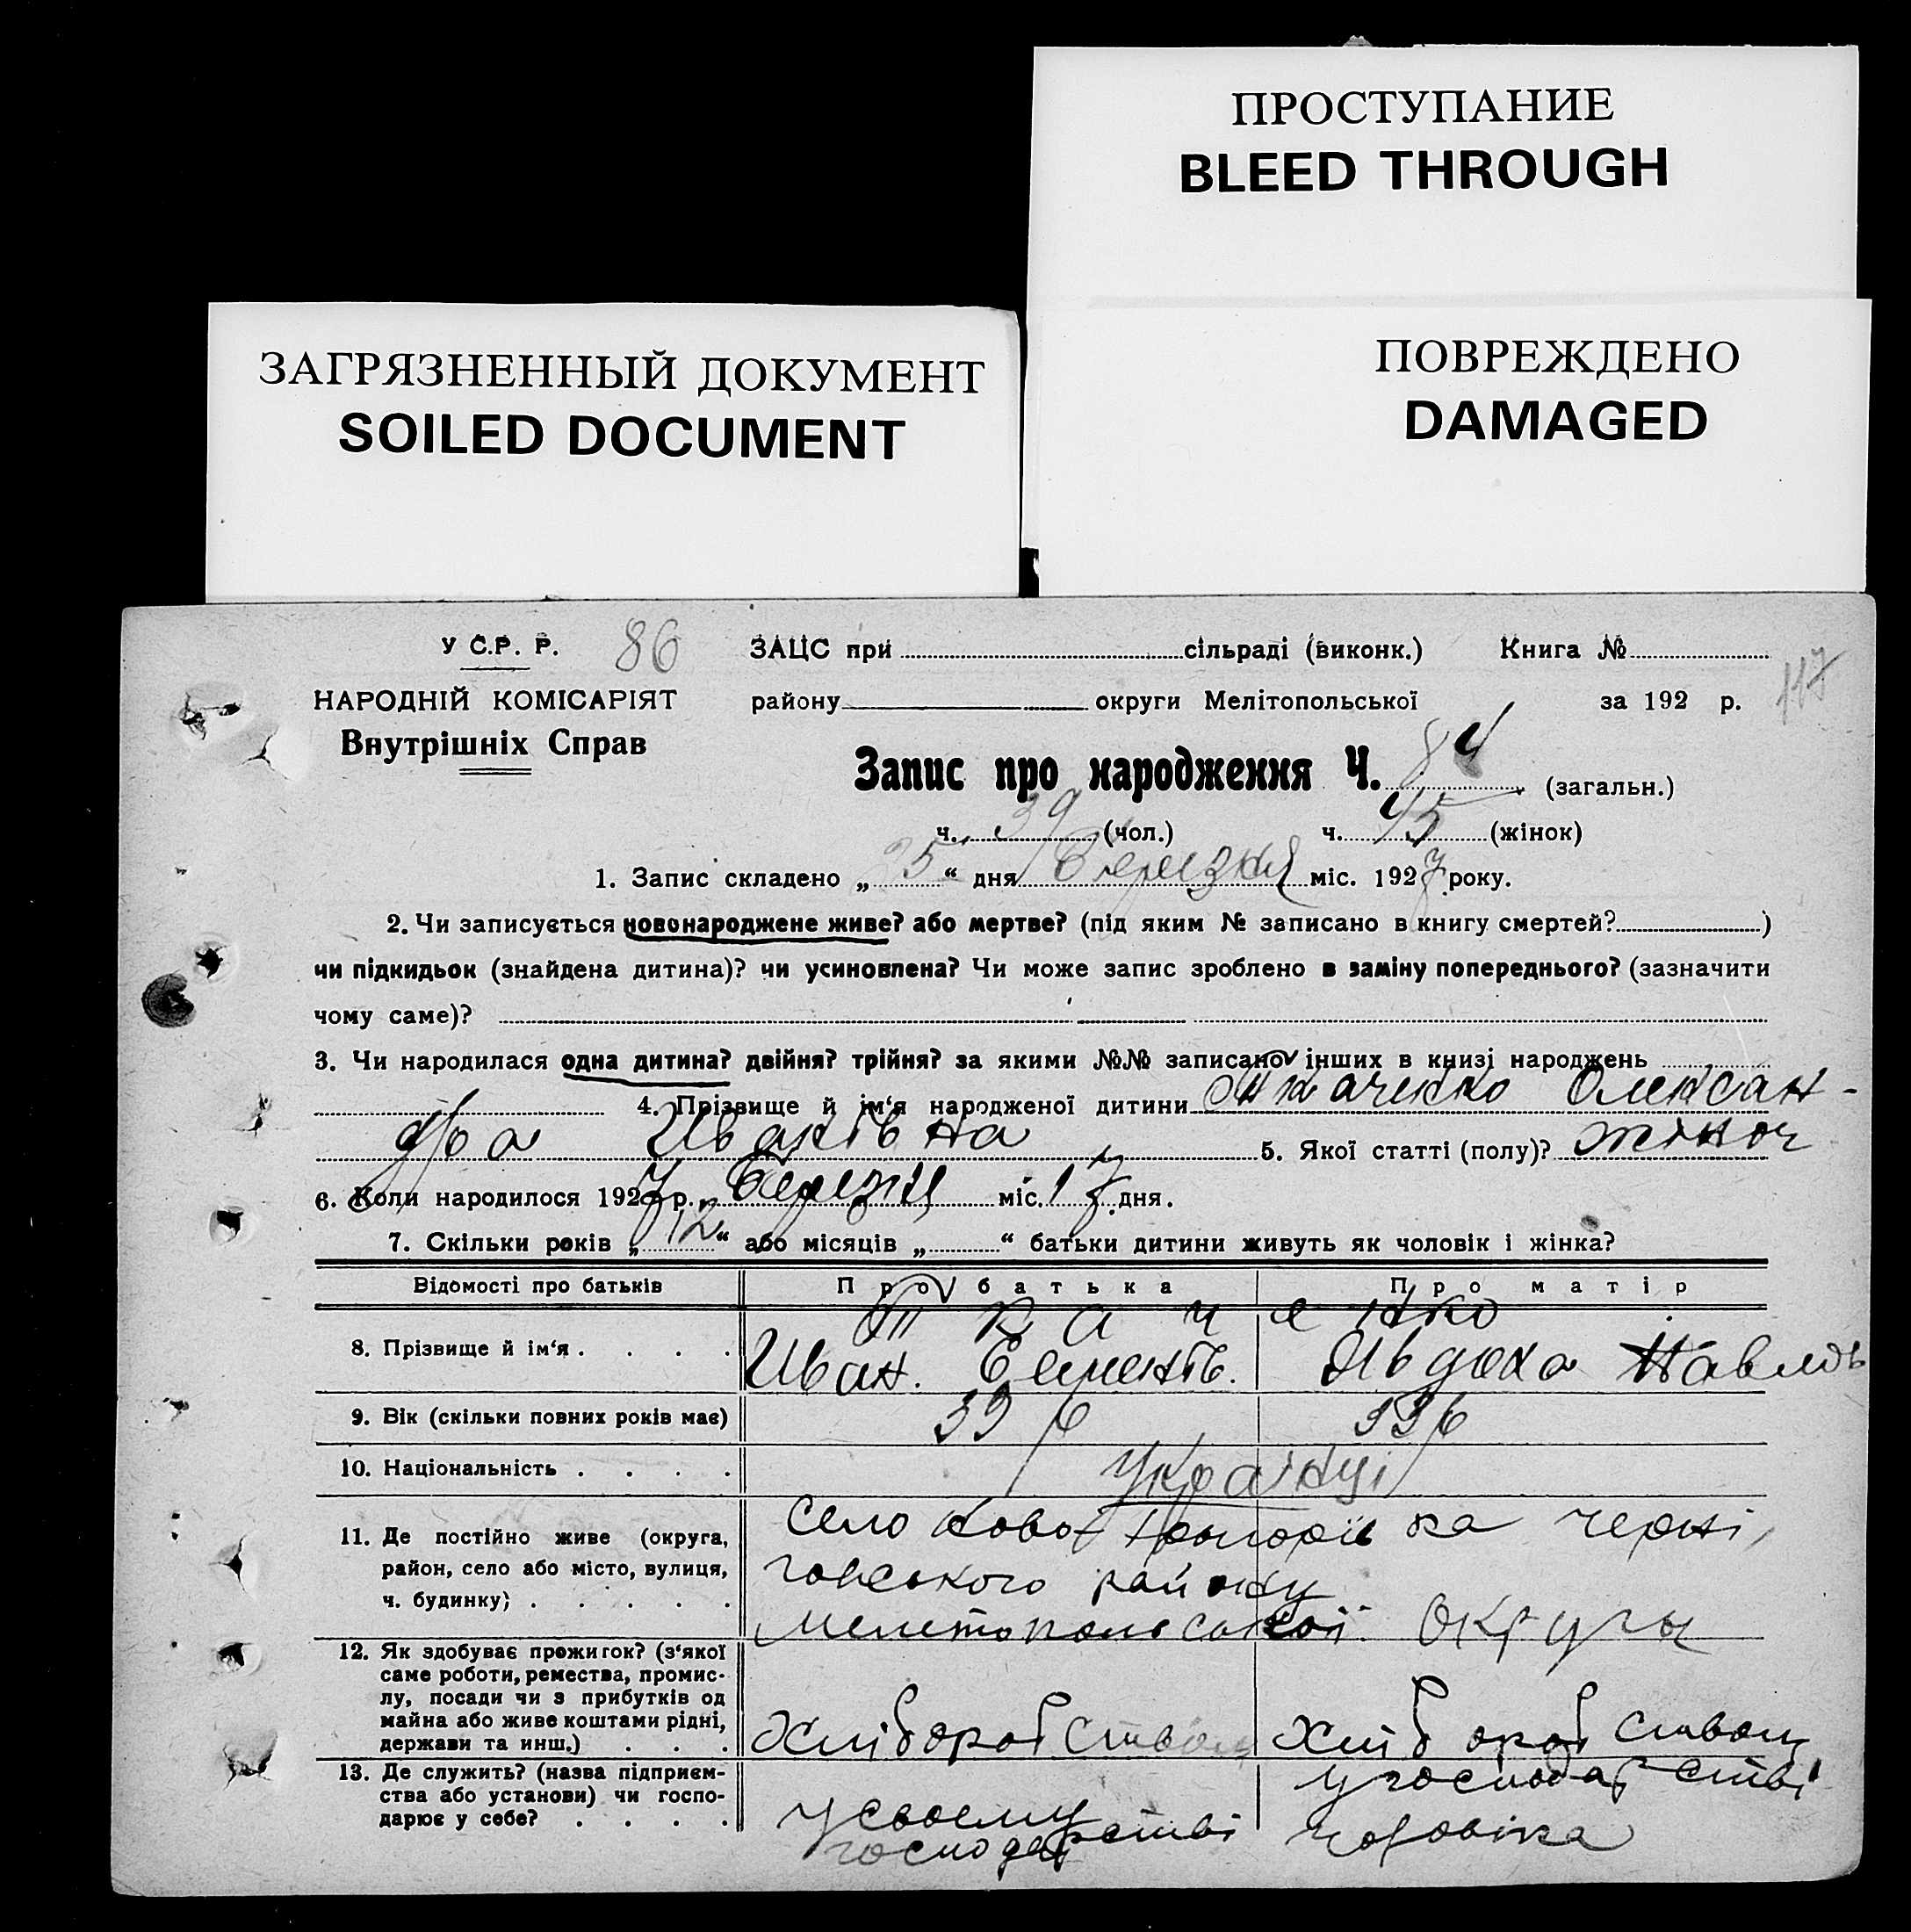 ПРОСТУПАНИЕ
BLEED THROUGH
ЗАГРЯЗНЕННЫЙ ДОКУМЕНТ
SOILED DOCUMENT
ПОВРЕЖДЕНО
DAMAGED
У С.Р. Р. 86 ЗАЦС при сільраді (виконк.) Книга №
117
НАРОДНІЙ КОМІСАРІЯТ району округи Мелітопольської за 192 р.
Внутрішніх Справ
Запис про народження Ч. 84 (загальн.)
ч. 39 (чол.) ч. 45 (жінок)
1. Запис складено „25“ дня Березня міс. 1927 року.
2. Чи записується новонароджене живе? або мертве? (під яким № записано в книгу смертей? )
чи підкидьок (знайдена дитина)? чи усиновлена? Чи може запис зроблено в заміну попереднього? (зазначити
чому саме)?
3. Чи народилася одна дитина? двійня? трійня? за якими №№ записано інших в книзі народжень
4. Прізвище й ім‘я народженої дитини Ткаченко Олексан-
дра Ивановна 5. Якої статті (полу)? жіноч
6. Коли народилося 1927 р. Березня міс. 17 дня.
7. Скільки років „12“ або місяців „ “ батьки дитини живуть як чоловік і жінка?
Відомості про батьків Про батька Про матір
Ткаченко
8. Прізвище й ім‘я . . . . Иван. Явдоха Павлов
9. Вік (скільки повних років має) 39 р 33 р
10. Національність . . . . Українці
11. Де постійно живе (округа, село Ново Григорівка Черні,
район, село або місто, вулиця, говського району
ч. будинку; . . . . . Мелетопольської Округы
12. Як здобуває прожиток? (з‘якої
саме роботи, ремества, промис-
лу, посади чи з прибутків од
майна або живе коштами рідні,
держави та инш.) . . . Хлібороб ством Хлібороб ством
13. Де служить? (назва підприєм- у господарстві
ства або установи) чи госпо- у своєму
дарює у себе? . . . . господарстві чоловіка